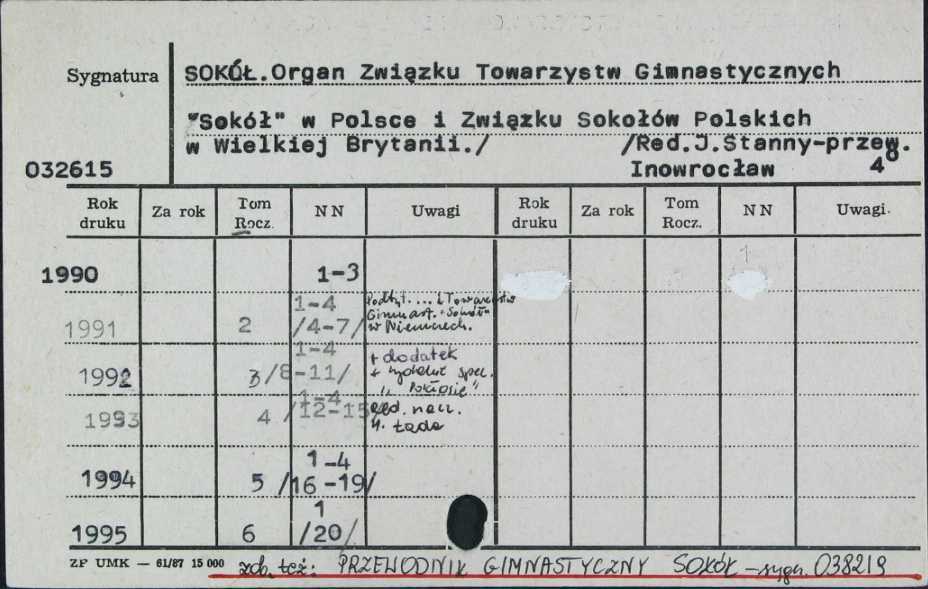 Sygnatura
SOKÓŁ.Organ Związku Towarzystw Gimnastycznych
"Sokół" w Polsce i Związku Sokołów Polskich
w Wielkiej Brytanii./ /Red.J.Stanny-przew.
032615 Inowrocław 4°
Rok druku Za rok Tom Rocz. NN Uwagi Rok druku Za rok Tom Rocz. NN Uwagi
1990 1-3 1
1991 2 1-4 /4-7/ Podtyt. ... i Towarzystw Gimnast. "Sokół" w Niemczech.
1992 3 1-4 /8-11/ + dodatek + wydanie spec.
1993 4 1-4 /12-15/ red. nacz.
1994 5 1-4 /16-19/
1995 6 1 /20/
ZP UMK — 61/87 15 000 zob. też: PRZEWODNIK GIMNASTYCZNY SOKÓŁ – sygn. 038219